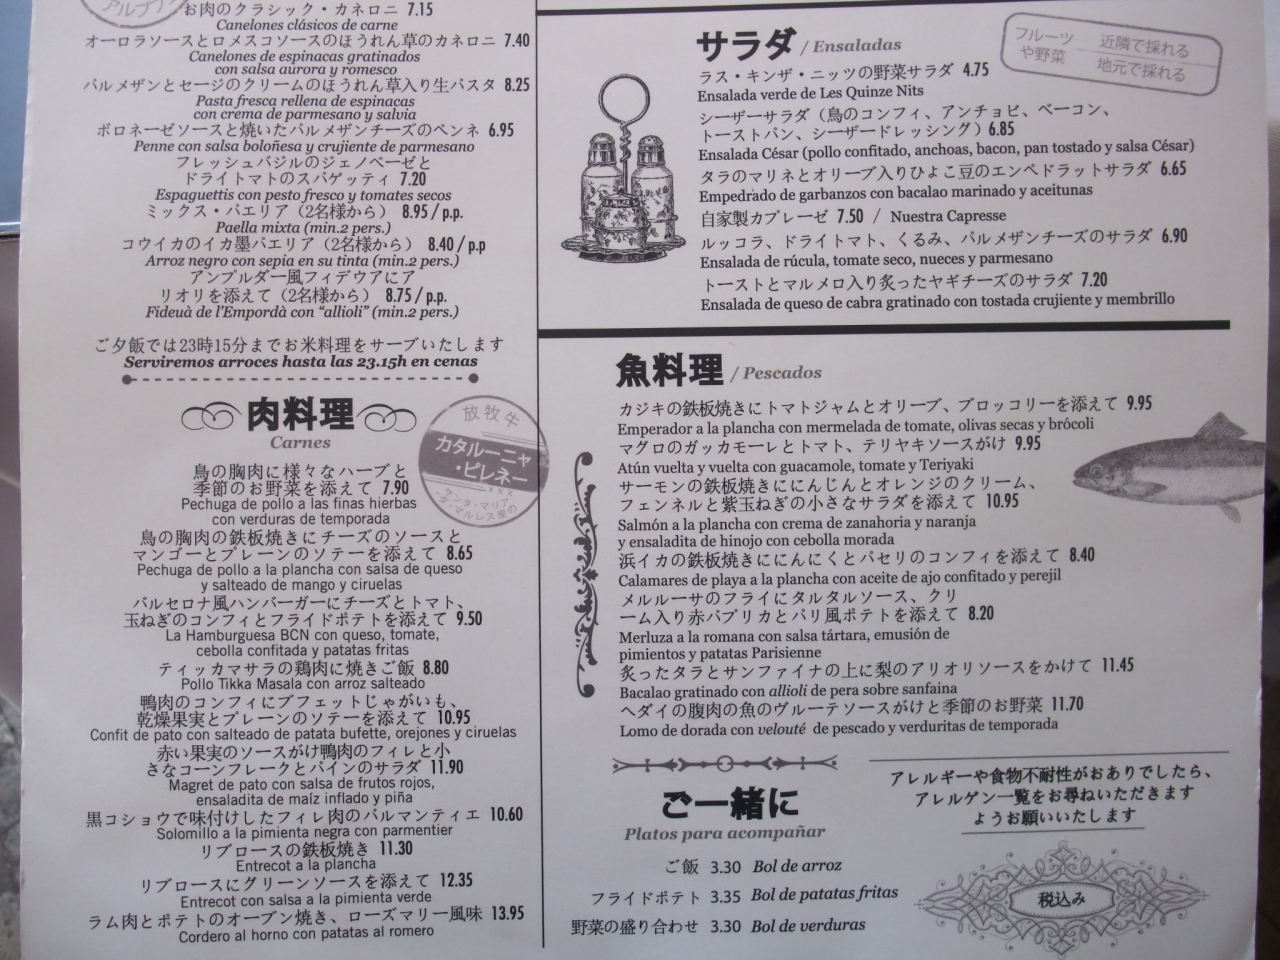 アルプラ
お肉のクラシック・カネロニ 7.15
Canelones clásicos de carne
オーロラソースとロメスコソースのほうれん草のカネロニ 7.40
Canelones de espinacas gratinados
con salsa aurora y romesco
パルメザンとセージのクリームのほうれん草入り生パスタ 8.25
Pasta fresca rellena de espinacas
con crema de parmesano y salvia
ボロネーゼソースと焼いたパルメザンチーズのペンネ 6.95
Penne con salsa boloñesa y crujiente de parmesano
フレッシュバジルのジェノベーゼと
ドライトマトのスパゲッティ 7.20
Espaguettis con pesto fresco y tomates secos
ミックス・パエリア（2名様から） 8.95 / p.p.
Paella mixta (min.2 pers.)
コウイカのイカ墨パエリア（2名様から） 8.40 / p.p
Arroz negro con sepia en su tinta (min.2 pers.)
アンプルダー風フィデウアにア
リオリを添えて（2名様から） 8.75 / p.p.
Fideuà de l'Empordà con "allioli" (min.2 pers.)
ご夕飯では23時15分までお米料理をサーブいたします
Serviremos arroces hasta las 23.15h en cenas
肉料理
Carnes
放牧牛
カタルーニャ
・ピレネー
×××
サンタ・マリア・
デ・マルレス産の
鳥の胸肉に様々なハーブと
季節のお野菜を添えて 7.90
Pechuga de pollo a las finas hierbas
con verduras de temporada
鳥の胸肉の鉄板焼きにチーズのソースと
マンゴーとプレーンのソテーを添えて 8.65
Pechuga de pollo a la plancha con salsa de queso
y salteado de mango y ciruelas
バルセロナ風ハンバーガーにチーズとトマト、
玉ねぎのコンフィとフライドポテトを添えて 9.50
La Hamburguesa BCN con queso, tomate,
cebolla confitada y patatas fritas
ティッカマサラの鶏肉に焼きご飯 8.80
Pollo Tikka Masala con arroz salteado
鴨肉のコンフィにブフェットじゃがいも、
乾燥果実とプレーンのソテーを添えて 10.95
Confit de pato con salteado de patata bufette, orejones y ciruelas
赤い果実のソースがけ鴨肉のフィレと小
さなコーンフレークとパインのサラダ 11.90
Magret de pato con salsa de frutos rojos,
ensaladita de maíz inflado y piña
黒コショウで味付けしたフィレ肉のパルマンティエ 10.60
Solomillo a la pimienta negra con parmentier
リブロースの鉄板焼き 11.30
Entrecot a la plancha
リブロースにグリーンソースを添えて 12.35
Entrecot con salsa a la pimienta verde
ラム肉とポテトのオーブン焼き、ローズマリー風味 13.95
Cordero al horno con patatas al romero
サラダ / Ensaladas
フルーツ
や野菜
近隣で採れる
地元で採れる
ラス・キンザ・ニッツの野菜サラダ 4.75
Ensalada verde de Les Quinze Nits
シーザーサラダ（鳥のコンフィ、アンチョビ、ベーコン、
トーストパン、シーザードレッシング）6.85
Ensalada César (pollo confitado, anchoas, bacon, pan tostado y salsa César)
タラのマリネとオリーブ入りひよこ豆のエンペドラットサラダ 6.65
Empedrado de garbanzos con bacalao marinado y aceitunas
自家製カプレーゼ 7.50 / Nuestra Capresse
ルッコラ、ドライトマト、くるみ、パルメザンチーズのサラダ 6.90
Ensalada de rúcula, tomate seco, nueces y parmesano
トーストとマルメロ入り炙ったヤギチーズのサラダ 7.20
Ensalada de queso de cabra gratinado con tostada crujiente y membrillo
魚料理 / Pescados
カジキの鉄板焼きにトマトジャムとオリーブ、ブロッコリーを添えて 9.95
Emperador a la plancha con mermelada de tomate, olivas secas y brócoli
マグロのガッカモーレとトマト、テリヤキソースがけ 9.95
Atún vuelta y vuelta con guacamole, tomate y Teriyaki
サーモンの鉄板焼きににんじんとオレンジのクリーム、
フェンネルと紫玉ねぎの小さなサラダを添えて 10.95
Salmón a la plancha con crema de zanahoria y naranja
y ensaladita de hinojo con cebolla morada
浜イカの鉄板焼きににんにくとパセリのコンフィを添えて 8.40
Calamares de playa a la plancha con aceite de ajo confitado y perejil
メルルーサのフライにタルタルソース、クリ
ーム入り赤パプリカとパリ風ポテトを添えて 8.20
Merluza a la romana con salsa tártara, emusión de
pimientos y patatas Parisienne
炙ったタラとサンファイナの上に梨のアリオリソースをかけて 11.45
Bacalao gratinado con allioli de pera sobre sanfaina
ヘダイの腹肉の魚のヴルーテソースがけと季節のお野菜 11.70
Lomo de dorada con velouté de pescado y verduritas de temporada
ご一緒に
Platos para acompañar
ご飯 3.30 Bol de arroz
フライドポテト 3.35 Bol de patatas fritas
野菜の盛り合わせ 3.30 Bol de verduras
アレルギーや食物不耐性がおありでしたら、
アレルゲン一覧をお尋ねいただきます
ようお願いいたします
税込み